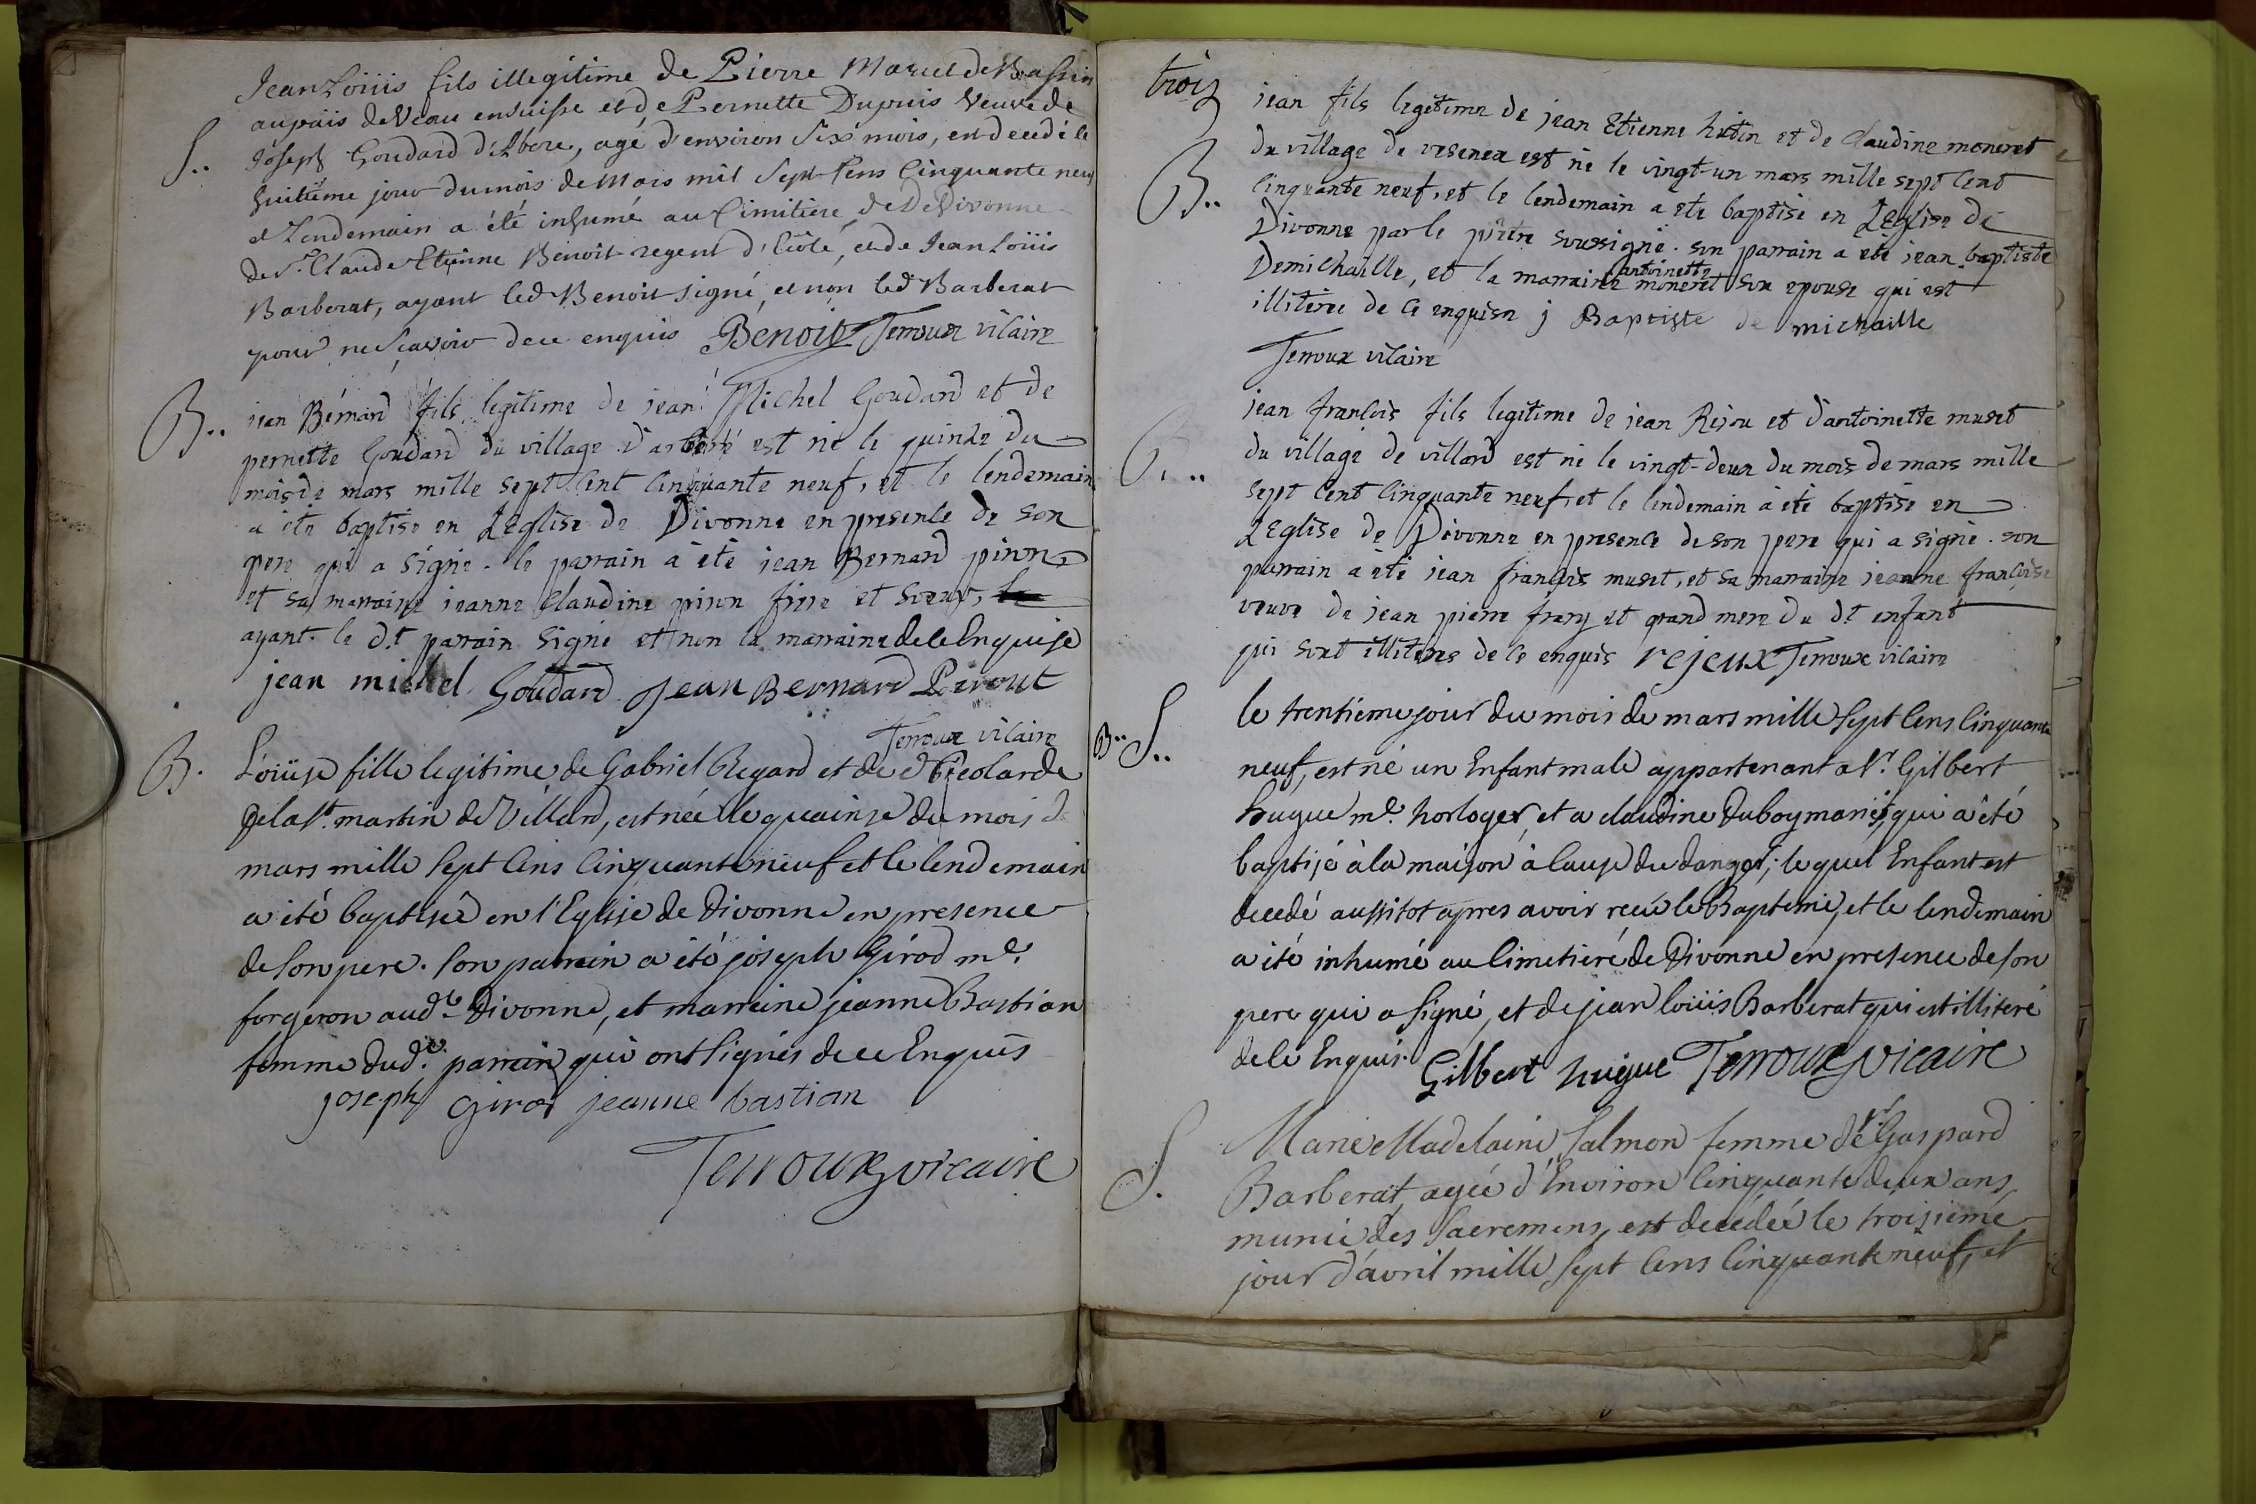 Jean Loüis fils illegitime de Pierre Maruel de Bassin
S.. au païs de Veau en suisse et de Pernette Dupuis Veuve de
Joseph Goudard d'Abere, agé d'environ six mois, est decedé le
huitieme jour du mois de Mars mil Sept Cens Cinquante neuf
et l'endemain a été inhumé au Cimitiere de De Divonne
de Sr. Claude Etienne Benoit regent d'Ecôle, et de Jean Loüis
Barberat, ayant led Benoit signé, et non led Barberat
pour ne Scavoir de ce enquis Benoit Terroux vicaire
B.. jean Bernard fils legitime de jean Michel Goudard et de
pernette Goudard du village d'arbere est né le quinze du
mois de mars mille sept cent cinquante neuf, et le lendemain
a été baptisé en L'Eglise de Divonne en presence de son
pere qui a signé. le parrain a été jean Bernard piron
et sa marraine jeanne claudine piron frere et soeur,
ayant le dt parrain signé et non la marraine de ce Enquise
jean michel Goudard Jean Bernard Pirout
Terroux vicaire
B. Loüise fille legitime de Gabriel Regard et de
de la St. martin de Villard, est née le quainse du mois de
mars mille sept Cens Cinquante neuf et le lendemain
a été baptisée en l'Eglise de Divonne en presence
de son pere. Son parrain a été joseph Girod md.
forgeron aud. Divonne, et marreine jeanne Bastian
femme dud. parrain qui ont signés de ce Enquis
joseph Girod jeanne bastian
Terroux vicaire
trois
jean fils legitime de jean Etienne hutin et de claudine moneret
du village de vesenex est né le vingt-un mars mille sept cent
B.. cinquante neuf, et le lendemain a été baptisé en L'Eglise de
Divonne par le prêtre soussigné. son parrain a été jean baptiste
Demichaille, et la marraine antoinette moneret son epouse qui est
illiterée de ce enquise j Baptiste de michaille
Terroux vicaire
jean françois fils legitime de jean Rejou et d'antoinette muset
B.. du village de villard est né le vingt-deux du mois de mars mille
sept cent cinquante neuf, et le lendemain a été baptisé en
L'Eglise de Divonne en presence de son pere qui a signé. son
parrain a été jean françois muset, et sa marraine jeanne françoise
veuve de jean pierre frary et grand mere du dt enfant
qui sont illiteres de ce enquis rejeux Terroux vicaire
B.. S.. le trentieme jour du mois de mars mille Sept Cens Cinquante
neuf, est né un Enfant male appartenant a Sr. Gilbert
hugue md. horloger, et a claudine Duboy mariés, qui a été
baptisé à la maison à Cause du danger; le quel Enfant est
decedé aussitot apres avoir reçu le Bapteme, et le lendemain
a été inhumé au Cimetiere de Divonne en presence de son
pere qui a signé, et de jean loüis Barberat qui est illiteré
de ce Enquis. Gilbert hugue Terroux vicaire
Marie Madelaine Salmon femme de Sr. Gaspard
S. Barberat, agée d'Environ Cinquante deux ans,
munie des Sacremens, est decedée le troisieme
jour d'avril mille Sept Cens Cinquante neuf, et